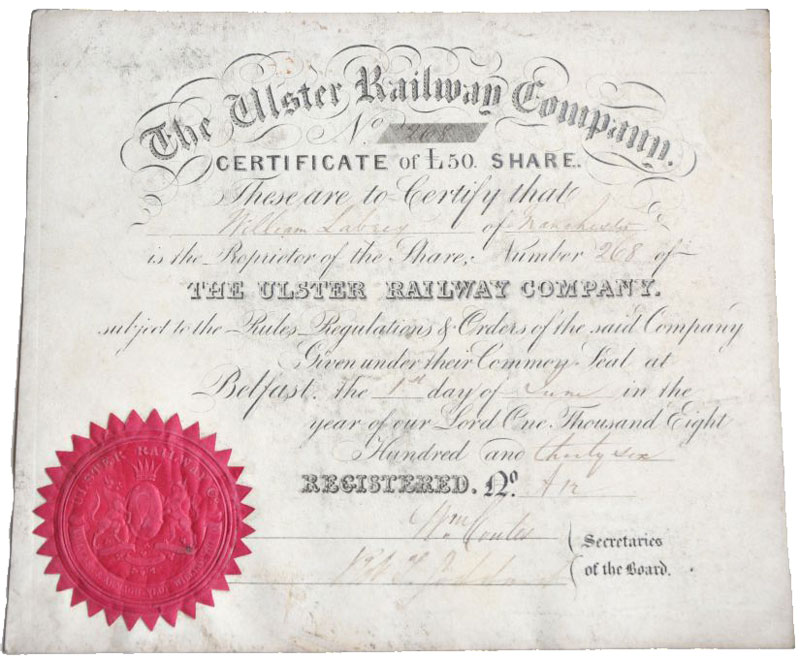 The Ulster Railway Company.
No 268
CERTIFICATE of £50. SHARE.
These are to Certify that
William Labrey of Manchester
is the Proprietor of the Share, Number 268 of
THE ULSTER RAILWAY COMPANY.
subject to the Rules Regulations & Orders of the said Company
Given under their Common Seal at
Belfast. The 1st day of June in the
year of our Lord One Thousand Eight
Hundred and thirty six
REGISTERED. No.
Wm Coulter
Secretaries
of the Board.
ULSTER RAILWAY Co